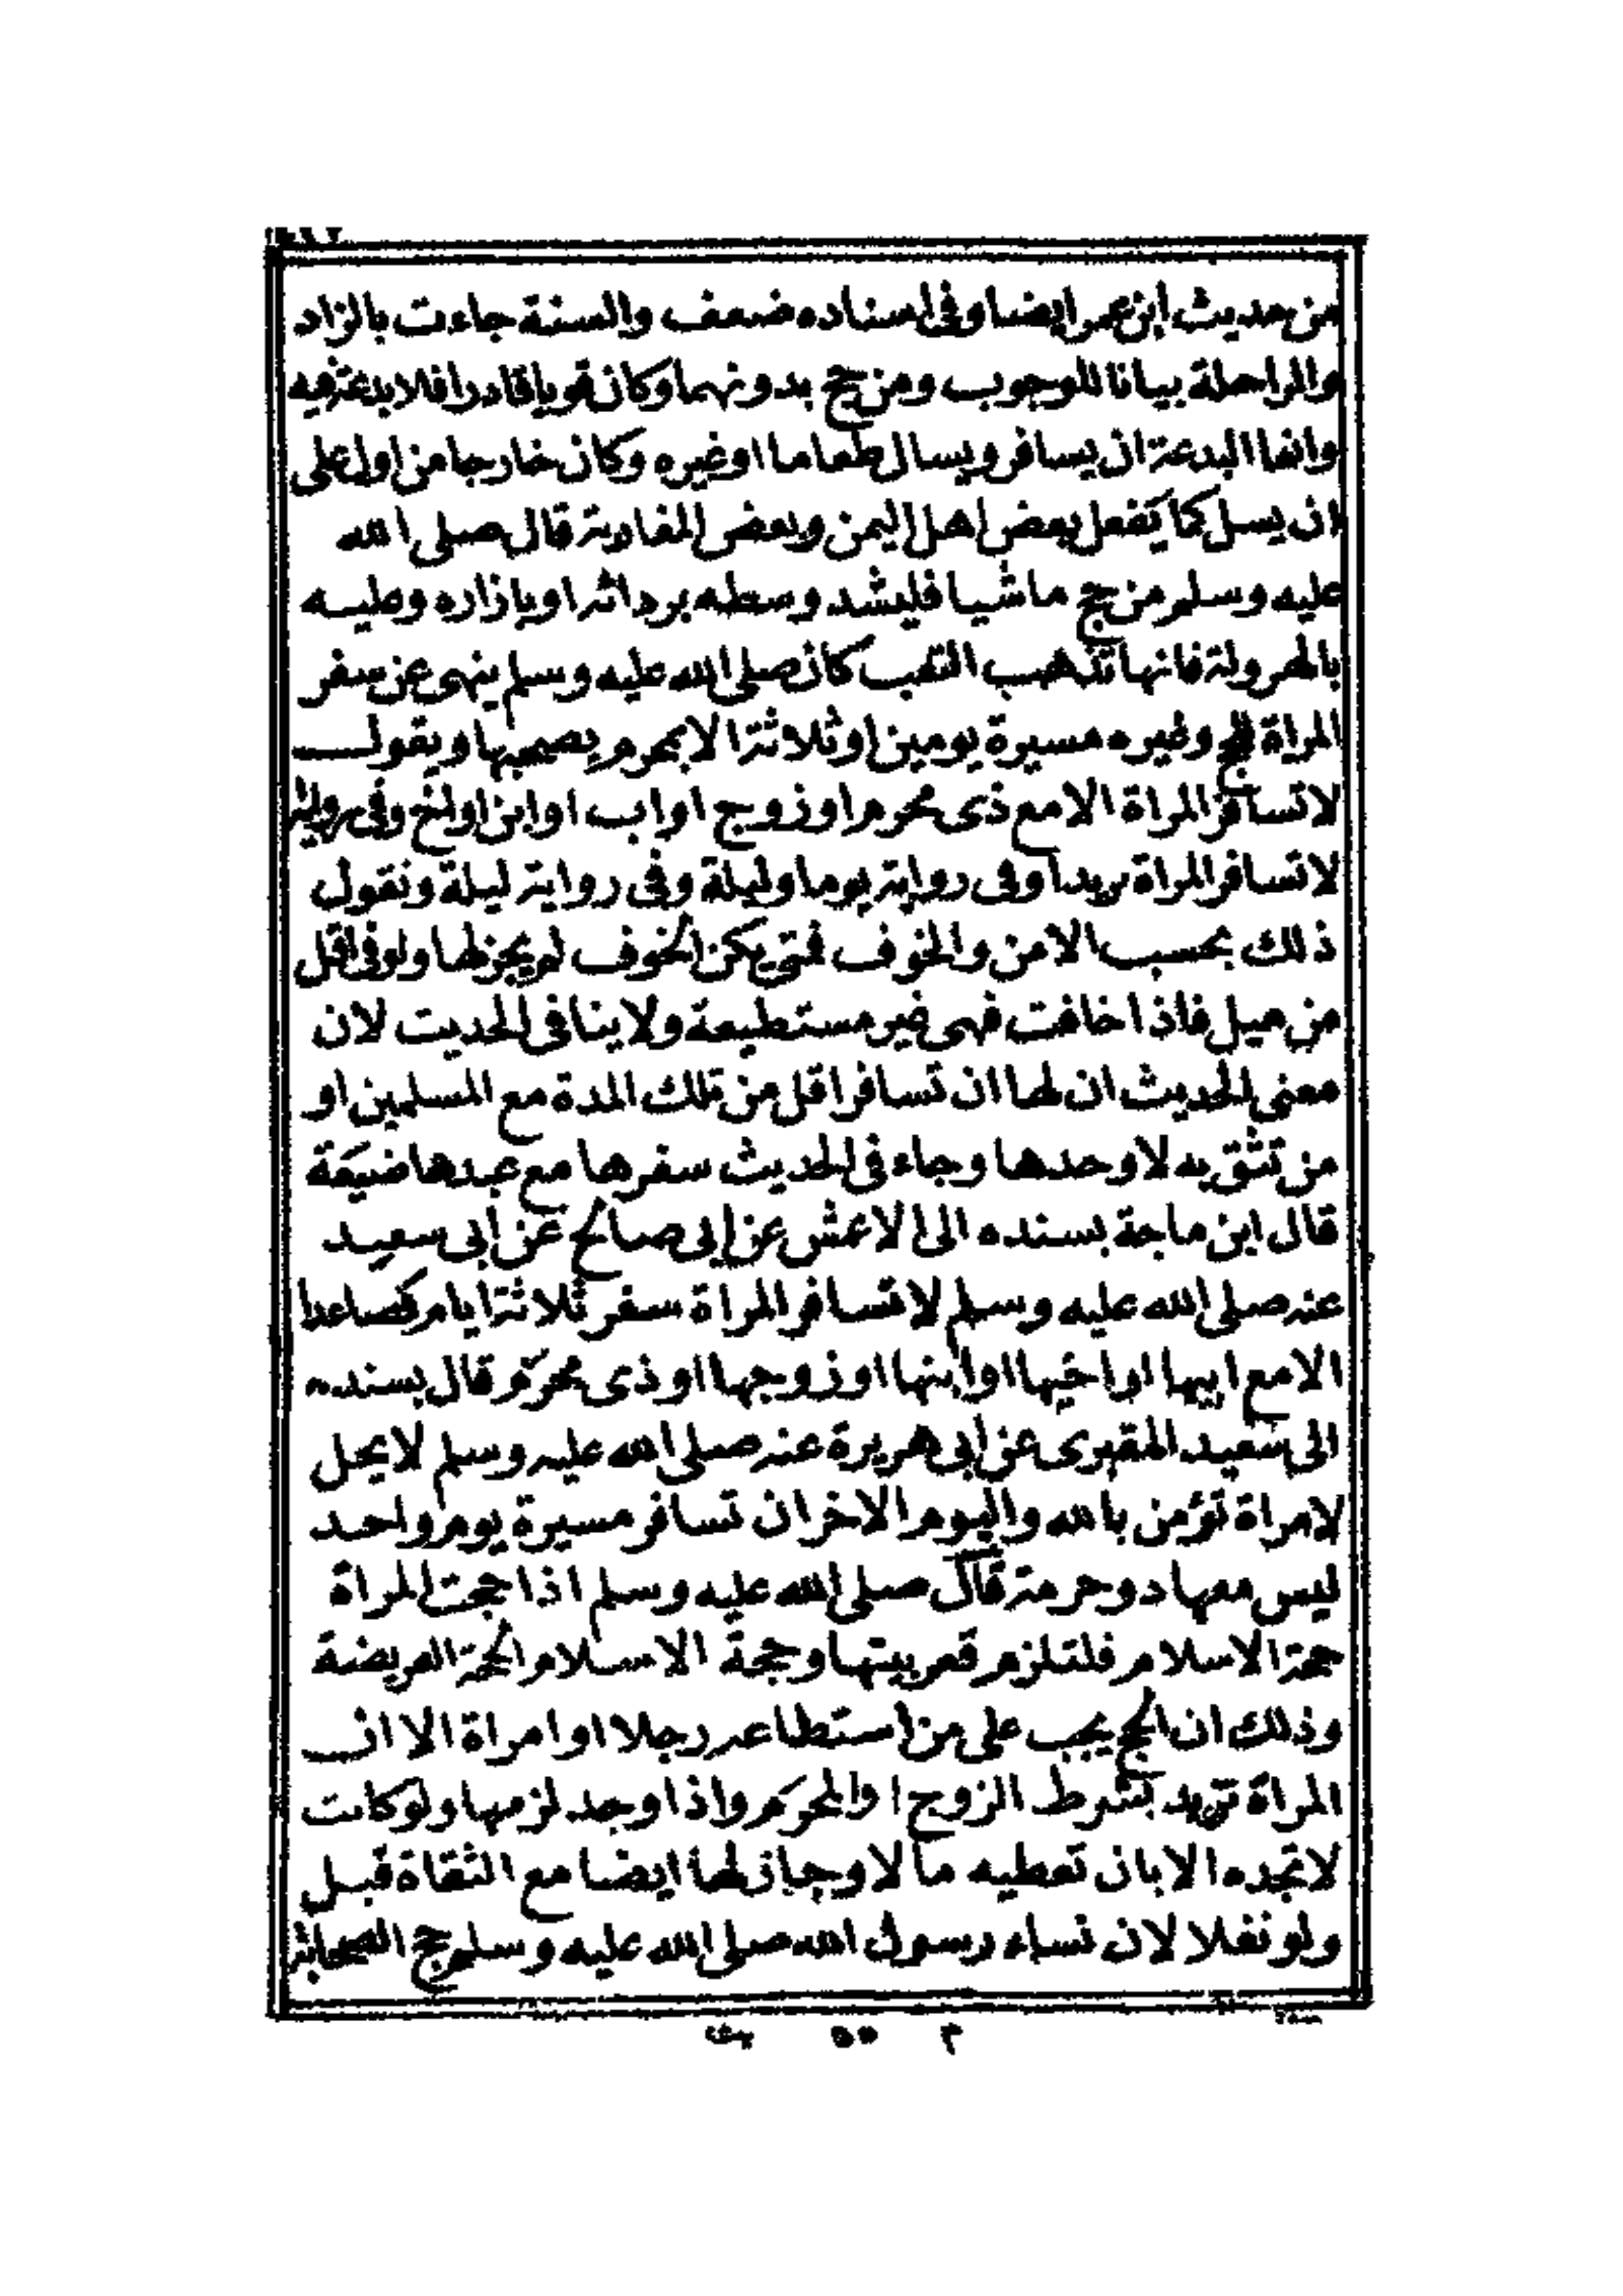 من حديث ابن عمر ايضا وفى اسناده ضعف والسنة جاءت بالزاد
والراحلة بيانا للوجوب ومن حج بدونهما وكان قويا قادرا فلا بدعة فيه
وانما البدعة ان يسافر ويسال طعاما او غيره وكان خارجا من اول على
ان يسل كما يفعل بعض اهل اليمن وبعض المغاربة قال صلى الله
عليه وسلم من حج ماشيا فليشد وسطه بردائه او بازاره وعليه
بالهرولة فانها تذهب التعب كان صلى الله عليه وسلم ينهى عن سفر
المراة لحج وغيره مسيرة يومين او ثلاثة الا بمحرم يصحبها ويقول
لا تسافر المراة الا مع ذى محرم او زوج او اب او ابن او اخ وفى رواية
لا تسافر المراة بريدا وفى رواية يوما وليلة وفى رواية ليلة ونقول
ذلك بحسب الامن والخوف فمتى يكن الخوف لم يجز لها ولو فى اقل
من ميل فاذا خافت فهى غير مستطيعة ولا ينافى الحديث لان
معنى الحديث ان لها ان تسافر اقل من تلك المدة مع المسلمين او
من تثق به لا وحدها وجاء فى الحديث سفرها مع عبدها ضيعة
قال ابن ماجة بسنده الى الاعمش عن ابى صالح عن ابى سعيد
عنه صلى الله عليه وسلم لا تسافر المراة سفر ثلاثة ايام فصاعدا
الا مع ابيها او اخيها او ابنها او زوجها او ذى محرم قال بسنده
الى سعيد المقبرى عن ابى هريرة عنه صلى الله عليه وسلم لا يحل
لامراة تؤمن بالله واليوم الاخر ان تسافر مسيرة يوم واحد
ليس معها دوحرمة قال صلى الله عليه وسلم اذا حجت المراة
حجة الاسلام فلتلزم قعر بيتها وحجة الاسلام الحجة الفريضة
وذلك ان الحج يجب على من استطاعه رجلا او امراة الا ان
المراة تزيد بشرط الزوج او المحرم واذا وجد لزمها ولو كانت
لا تجده الا بان تعطيه مالا وجاز لها ايضا مع الثقاة قبل
ولو نفلا لان نساء رسول الله صلى الله عليه وسلم حج الصحابة